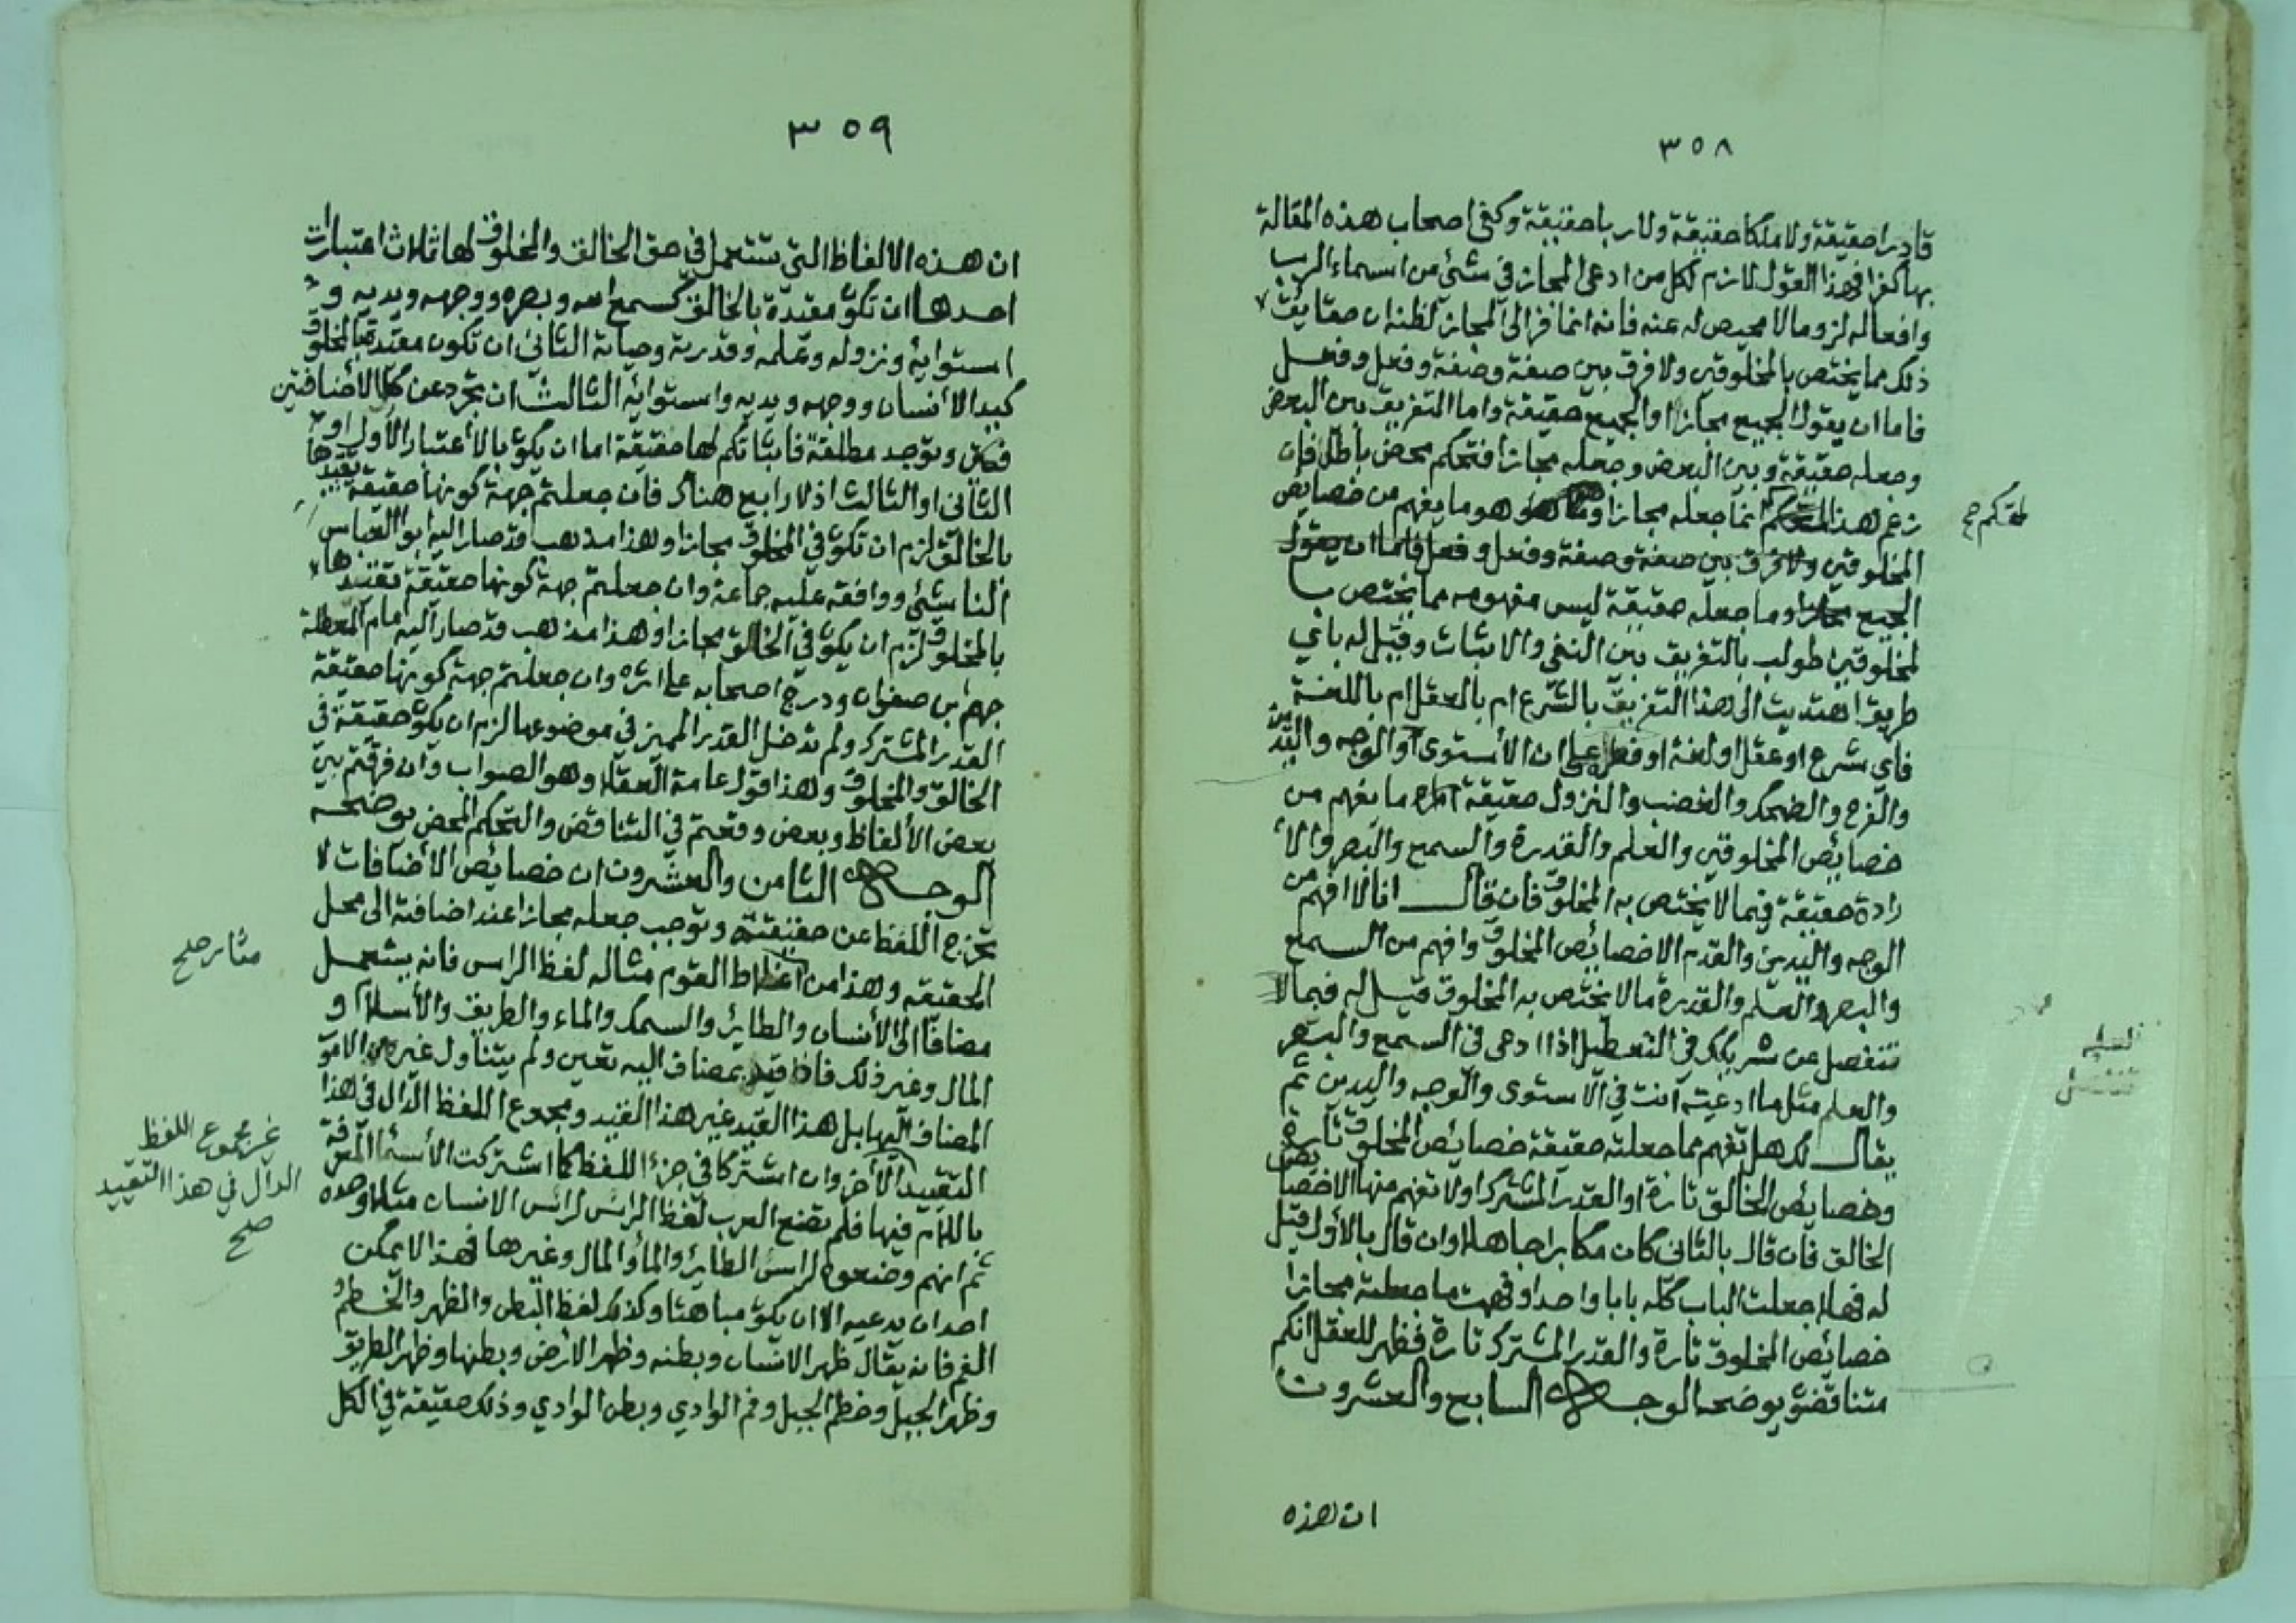 ٣٥٨
قادرا حقيقة ولا ملكا حقيقة ولا ربا حقيقة وكفى اصحاب هذه المقالة
بها كفرا فهذا القول لازم لكل من ادعى المجاز في شئ من اسماء الرب
وافعاله لزوما لا محيص له عنه فانه انما فر الى المجاز لظنه ان حقايق
ذلك مما يختص بالمخلوقين ولا فرق بين صفة وصفة وفعل وفعل
فاما ان يقول الجميع مجازا او الجميع حقيقة واما التفريق بين البعض
وجعله حقيقة وبين البعض وجعله مجازا فتحكم محض باطل فان
زعم هذا المتحكم انما جعله مجازا هو ما يفهم من خصايص
المخلوقين ولا فرق بين صفة وصفة وفعل وفعل فاما ان يقول
الجميع مجازا وما جعله حقيقة ليس مفهومه مما يختص با
لمخلوقين طولب بالتفريق بين النفي والاثبات وقيل له باي
طريق اهتديت الى هذا التفريق بالشرع ام بالعقل ام باللغة
فاي شرع او عقل او لغة او فطرة على ان الأستوى والوجه واليدين
والفرح والضحك والغضب والنزول حقيقة ما يفهم من
خصايص المخلوقين والعلم والقدرة والسمع والبصر والا
رادة حقيقة فيما لا يختص به المخلوق فان قال انا لا افهم من
الوجه واليدين والقدم الا خصايص المخلوق وافهم من السمع
والبصر والعلم والقدرة ما لا يختص به المخلوق قيل له فبما لا
تنفصل عن شريكك في التعطيل اذا ادعى في السمع والبصر
والعلم مثل ما ادعيته انت في الاستوى والوجه واليدين ثم
يقال لك هل تفهم مما جعلته حقيقة خصايص المخلوق تارة
وخصايص الخالق تارة او القدر المشترك او لا تفهم منها الا خصايص
الخالق فان قال بالثاني كان مكابرا جاهلا وان قال بالأول قيل
له فهلا جعلت الباب كله بابا واحدا وفهمت ما جعلته مجازا
خصائص المخلوق تارة والقدر المشترك تارة فظهر للعقل انكم
متناقضون يوضحه الوجه السابع والعشرون
ان هذه
٣٥٩
ان هذه الالفاظ التي تستعمل في حق الخالق والمخلوق لها ثلاث اعتبارات
احدها ان تكون مقيدة بالخالق كسمع الله وبصره ووجهه ويديه و
استوايه ونزوله وعلمه وقدرته وحياته الثاني ان تكون مقيدة بالمخلوق
كيد الأنسان ووجهه ويديه واستوايه الثالث ان تجرد عن كلا الأضافتين
وتوجد مطلقة فاثباتكم لها حقيقة اما ان يكون بالأعتبار الأول او
الثاني او الثالث اذ لا رابع هناك فان جعلتم جهة كونها حقيقة تقيدها
بالخالق لزم ان تكون في المخلوق مجازا وهذا مذهب قد صار اليه ابو العباس
الناشئ ووافقه عليه جماعة وان جعلتم جهة كونها حقيقة تقيدها
بالمخلوق لزم ان يكون في الخالق مجازا وهذا مذهب قد صار اليه امام المعطلة
جهم بن صفوان ودرج اصحابه على اثره وان جعلتم جهة كونها حقيقة
القدر المشترك ولم تدخل القدر المميز في موضوعها لزم ان يكون حقيقة في
الخالق والمخلوق وهذا قول عامة العقلا وهو الصواب وان فرقتم بين
بعض الألفاظ وبعض وقعتم في التناقض والتحكم المحض يوضحه
الوجه الثامن والعشرون ان خصايص الأضافات لا
تخرج اللفظ عن حقيقته وتوجب جعله مجازا عند اضافته الى محل
الحقيقه وهذا من اغلاط القوم مثاله لفظ الراس فانه يستعمل
مضافا الى الأنسان والطائر والسمك والماء والطريق والأسلام و
المال وغير ذلك فاذا قيد بمضاف اليه تعين ولم يتناول غيره من الامور
المضاف اليها بل هذا القيد غير هذا القيد ومجموع اللفظ الدال في هذا
التقييد الأخر وان اشتركا في جزء اللفظ كما اشتركت الأسما المعرفة
باللام فيها فلم تضع العرب لفظ الرأس لرأس الانسان مثلا وحده
ثم انهم وضعوه لراس الطاير والمأ والمال وغيرها فهذا لا يمكن
احدان يدعيه الا ان يكون مباهتا وكذلك لفظ البطن والظهر والخطم و
الفم فانه يقال ظهر الانسان وبطنه وظهر الأرض وبطنها وظهر الطريق
وظهر الجبل وخطم الجبل وفم الوادي وبطن الوادي وذلك حقيقة في الكل
غير مجموع اللفظ
الدال في هذا التقييد
صح